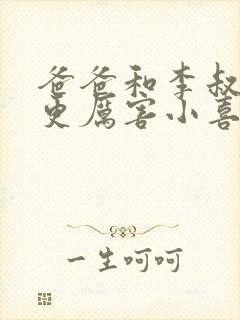 爸爸和李叔
更厲害小喜
一生呵呵